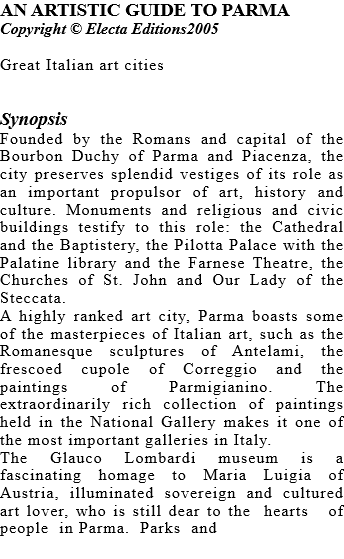 AN ARTISTIC GUIDE TO PARMA
Copyright © Electa Editions2005
Great Italian art cities
Synopsis
Founded by the Romans and capital of the
Bourbon Duchy of Parma and Piacenza, the
city preserves splendid vestiges of its role as
an important propulsor of art, history and
culture. Monuments and religious and civic
buildings testify to this role: the Cathedral
and the Baptistery, the Pilotta Palace with the
Palatine library and the Farnese Theatre, the
Churches of St. John and Our Lady of the
Steccata.
A highly ranked art city, Parma boasts some
of the masterpieces of Italian art, such as the
Romanesque sculptures of Antelami, the
frescoed cupole of Correggio and the
paintings of Parmigianino. The
extraordinarily rich collection of paintings
held in the National Gallery makes it one of
the most important galleries in Italy.
The Glauco Lombardi museum is a
fascinating homage to Maria Luigia of
Austria, illuminated sovereign and cultured
art lover, who is still dear to the hearts of
people in Parma. Parks and